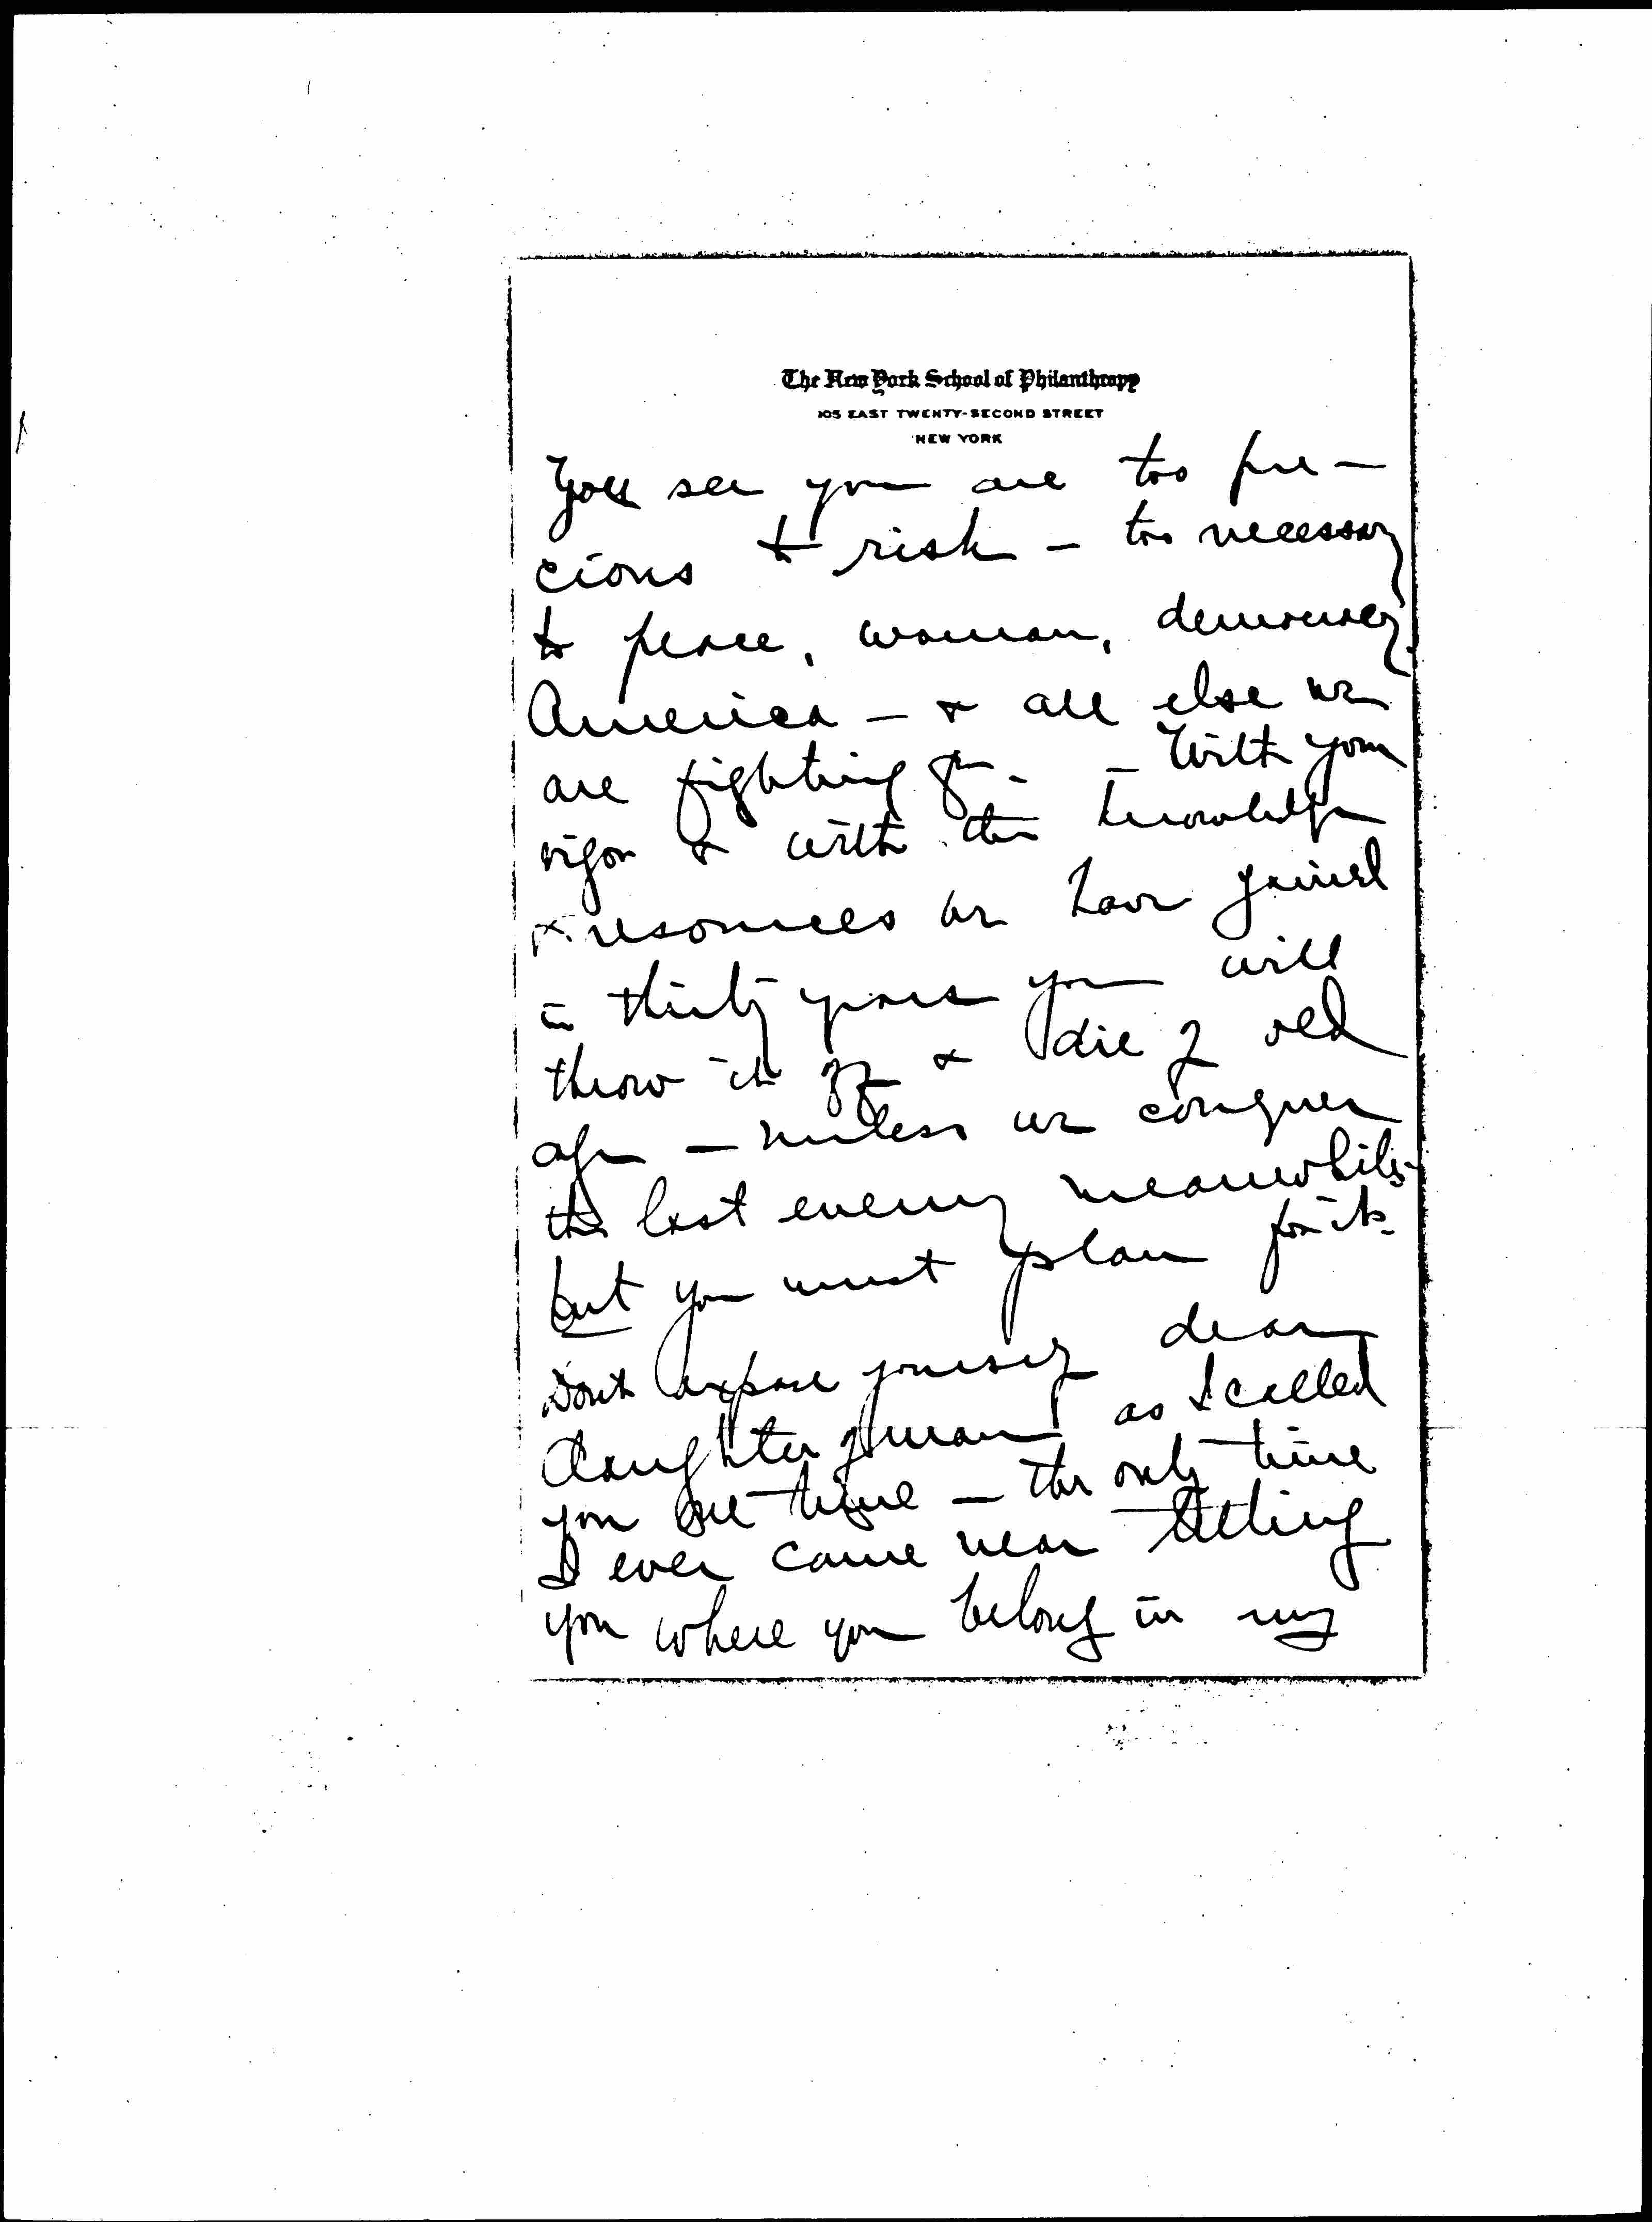 The New York School of Philanthropy
105 EAST TWENTY-SECOND STREET
NEW YORK
You see you are too pre-
cious to risk - too necessary
to peace, woman, democracy
America - & all else we
are fighting for. - With your
vigor & with the knowledge
& resources we have gained
in thirty years you will
throw it off & die of old
age - unless we conquer
the last enemy meanwhile
but you must plan for it.
Don't expose yourself dear
daughter of man as I called
you one time - the only time
I ever came near telling
you where you belong in my